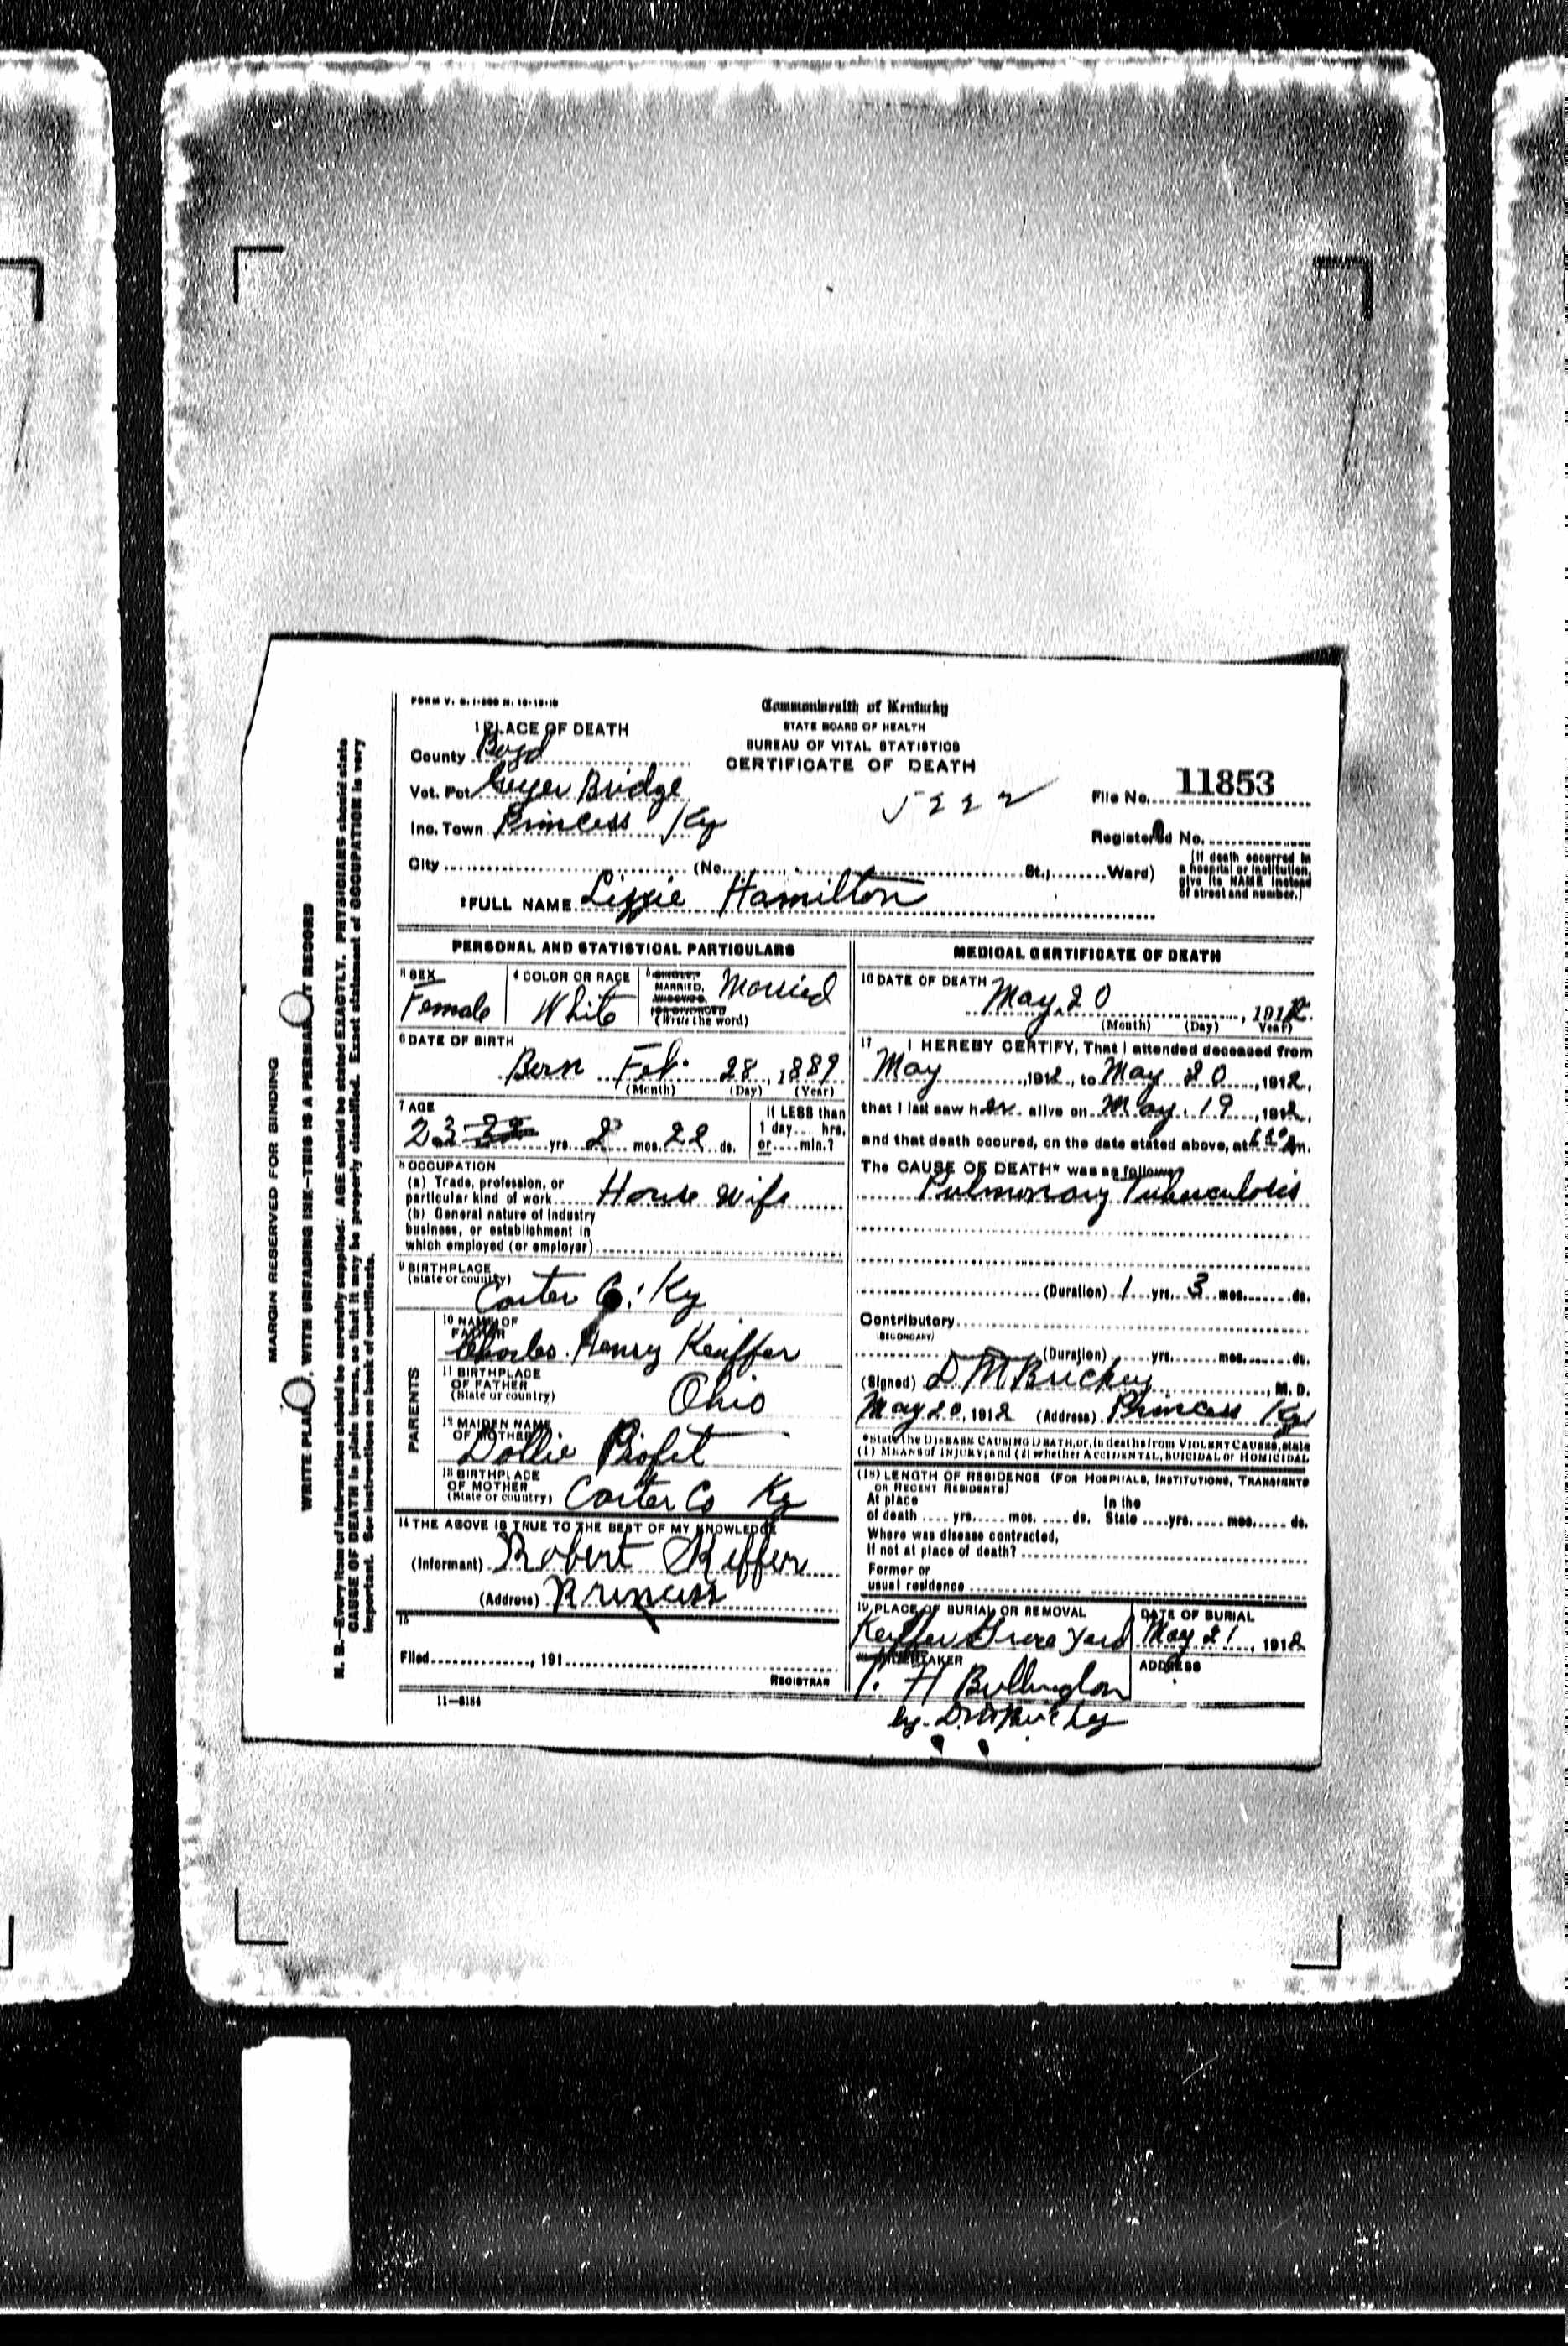 FORM V. S. 1-
Commonwealth of Kentucky
STATE BOARD OF HEALTH
BUREAU OF VITAL STATISTICS
CERTIFICATE OF DEATH
1 PLACE OF DEATH
County Boyd
Vot. Pct. Geyer Bridge
Inc. Town Princess Ky
City (No. St.; Ward)
5222
File No. 11853
Registered No.
(If death occurred in a hospital or institution, give its NAME instead of street and number.)
2 FULL NAME Lizzie Hamilton
PERSONAL AND STATISTICAL PARTICULARS
3 SEX
Female
4 COLOR OR RACE
White
5 SINGLE, MARRIED, WIDOWED, OR DIVORCED (Write the word)
Married
6 DATE OF BIRTH
Born Feb. 28, 1889
(Month) (Day) (Year)
7 AGE
23 22 yrs. 2 mos. 22 ds.
If LESS than 1 day.... hrs. or.... min.?
8 OCCUPATION
(a) Trade, profession, or
particular kind of work House wife
(b) General nature of industry
business, or establishment in
which employed (or employer)
9 BIRTHPLACE
(State or country)
Carter Co. Ky
PARENTS
10 NAME OF FATHER
Charles Henry Keiffer
11 BIRTHPLACE OF FATHER
(State or country) Ohio
12 MAIDEN NAME OF MOTHER
Dollie Profit
13 BIRTHPLACE OF MOTHER
(State or country) Carter Co Ky
14 THE ABOVE IS TRUE TO THE BEST OF MY KNOWLEDGE
(Informant) Robert Kiffer
(Address) Princess
15
Filed, 191
REGISTRAR
11-5184
MEDICAL CERTIFICATE OF DEATH
16 DATE OF DEATH
May 20, 1912
(Month) (Day) Year)
17 I HEREBY CERTIFY, That I attended deceased from
May, 1912, to May 20, 1912,
that I last saw her alive on May 19, 1912,
and that death occured, on the date stated above, at m.
The CAUSE OF DEATH* was as follows
Pulmonary Tuberculosis
(Duration) 1 yrs. 3 mos. ds.
Contributory
(SECONDARY)
(Duration) yrs. mos. ds.
(Signed) D M Brickey, M. D.
May 20, 1912 (Address) Princess Ky
*State the DISEASE CAUSING DEATH, or, in deaths from VIOLENT CAUSES, state
(1) MEANS of INJURY; and (2) whether ACCIDENTAL, SUICIDAL or HOMICIDAL
(18) LENGTH OF RESIDENCE (FOR HOSPITALS, INSTITUTIONS, TRANSIENTS
OR RECENT RESIDENTS)
At place of death .... yrs. .... mos. .... ds. In the State .... yrs. .... mos. .... ds.
Where was disease contracted,
If not at place of death?
Former or
usual residence
19 PLACE OF BURIAL OR REMOVAL
Keiffer Grave Yard
DATE OF BURIAL
May 21, 1912
UNDERTAKER
H Bullington
by D M Brickey
ADDRESS
MARGIN RESERVED FOR BINDING
WRITE PLAINLY, WITH UNFADING INK—THIS IS A PERMANENT RECORD
N. B.—Every item of information should be carefully supplied. AGE should be stated EXACTLY. PHYSICIANS should state
CAUSE OF DEATH in plain terms, so that it may be properly classified. Exact statement of OCCUPATION is very
important. See instructions on back of certificate.